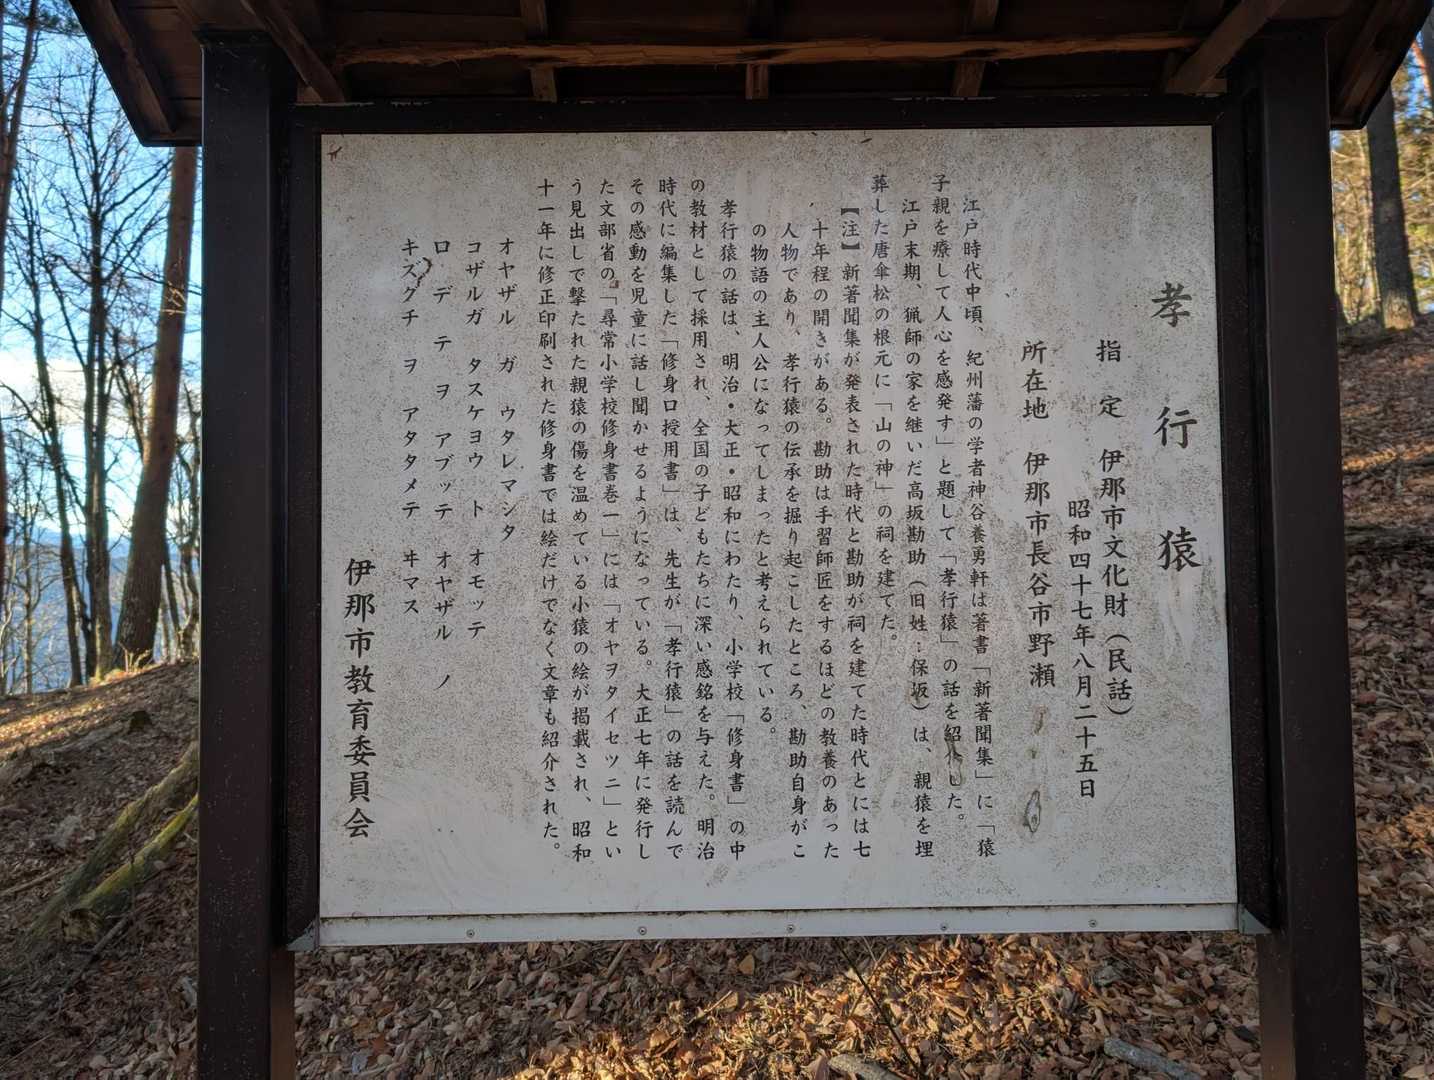 孝行猿
指定 伊那市文化財（民話）
昭和四十七年八月二十五日
所在地 伊那市長谷市野瀬
江戸時代中頃、紀州藩の学者神谷養勇軒は著書「新著聞集」に「猿
子親を療して人心を感発す」と題して「孝行猿」の話を紹介した。
江戸末期、猟師の家を継いだ高坂勘助（旧姓：保坂）は、親猿を埋
葬した唐傘松の根元に「山の神」の祠を建てた。
【注】新著聞集が発表された時代と勘助が祠を建てた時代とには七
十年程の開きがある。勘助は手習師匠をするほどの教養のあった
人物であり、孝行猿の伝承を掘り起こしたところ、勘助自身がこ
の物語の主人公になってしまったと考えられている。
孝行猿の話は、明治・大正・昭和にわたり、小学校「修身書」の中
の教材として採用され、全国の子どもたちに深い感銘を与えた。明治
時代に編集した「修身口授用書」は、先生が「孝行猿」の話を読んで
その感動を児童に話し聞かせるようになっている。大正七年に発行し
た文部省の「尋常小学校修身書巻一」には「オヤヲタイセツニ」とい
う見出しで撃たれた親猿の傷を温めている小猿の絵が掲載され、昭和
十一年に修正印刷された修身書では絵だけでなく文章も紹介された。
オヤザル ガ ウタレマシタ
コザルガ タスケヨウ ト オモッテ
ロ デ テ ヲ アブッテ オヤザル ノ
キズグチ ヲ アタタメテ ヰマス
伊那市教育委員会